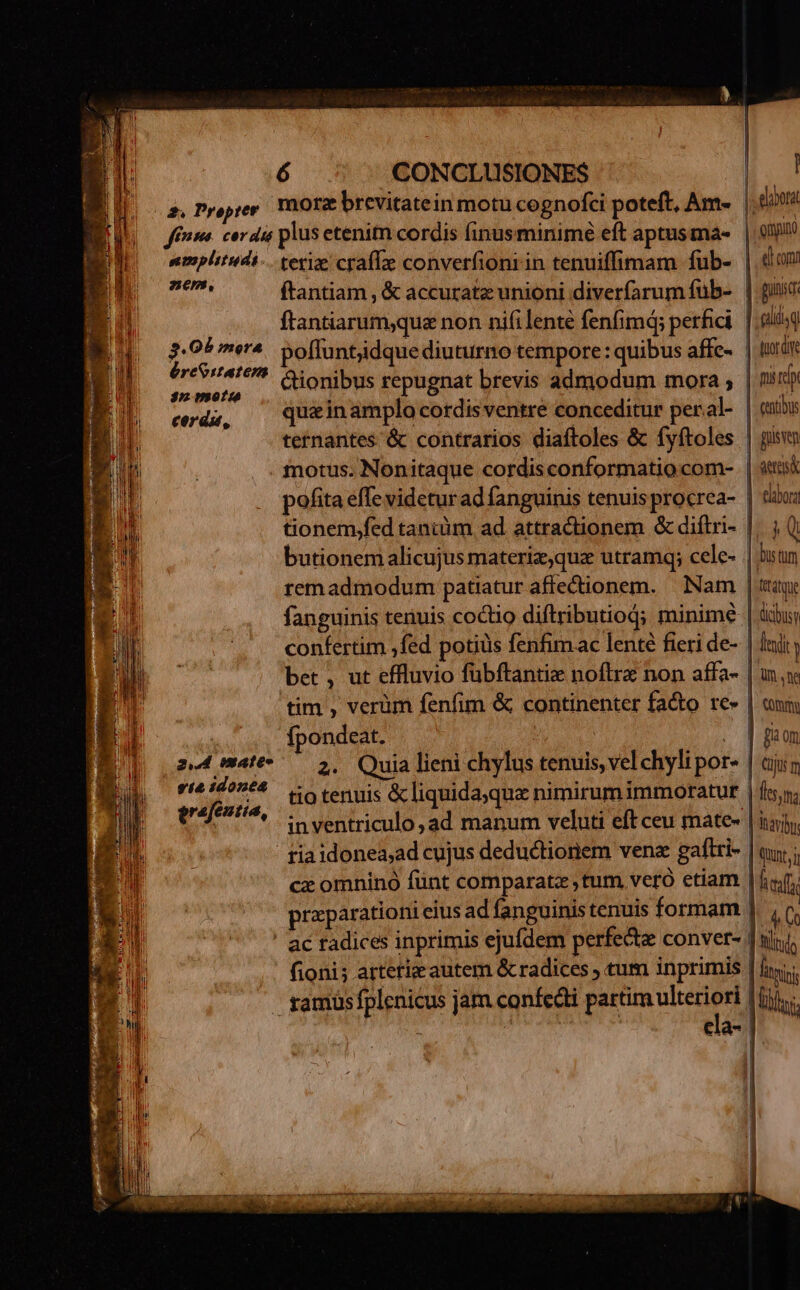 6 CONCLUSIONES
2. Propter
sinus cordis
amplitudi-
nem,
3. Ob moræ
brevitatem
in motu
cordis,
moræ brevitate in motu cognosci potest, Am-
plus etenim cordis sinus minimè est aptus ma-
teriæ crassæ conversioni in tenuissimam sub-
stantiam, & accuratæ unioni diversarum sub-
stantiarum, quæ non nisi lentè sensimq; perfici
possunt, idque diuturno tempore: quibus affe-
ctionibus repugnat brevis admodum mora,
quæ in amplo cordis ventre conceditur per al-
ternantes & contrarios diastoles & systoles
motus. Non itaque cordis conformatio com-
posita esse videtur ad sanguinis tenuis procrea-
tionem, sed tantùm ad attractionem & distri-
butionem alicujus materiæ, quæ utramq; cele-
rem admodum patiatur affectionem. Nam
sanguinis tenuis coctio distributioq; minimè
confertim, sed potiùs sensim ac lentè fieri de-
bet, ut effluvio substantiæ nostræ non affa-
tim, verùm sensim & continenter facto re-
spondeat.
2. A mate-
ria idonea
præsentia,
2. Quia lieni chylus tenuis, vel chyli por-
tio tenuis & liquida, quæ nimirum immoratur
in ventriculo, ad manum veluti est ceu mate-
ria idonea, ad cujus deductionem venæ gastri-
cæ omninò sunt comparatæ, tum verò etiam
præparationi eius ad sanguinis tenuis formam
ac radices inprimis ejusdem perfectæ conver-
sioni; arteriæ autem & radices, tum inprimis
ramus splenicus jam confecti partim ulteriori
ela-